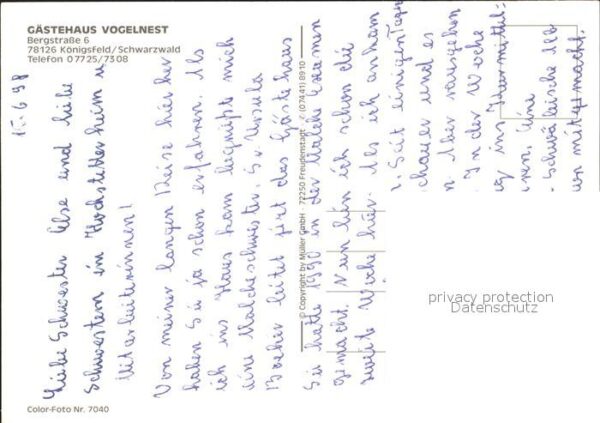 GÄSTEHAUS VOGELNEST
Bergstraße 6
78126 Königsfeld/Schwarzwald
Telefon 07725/7308
15.6.98
Liebe Schwester Else und liebe
Schwestern im Hochstetter heim u
Mitarbeiterinnen!
Von meiner langen Reise hierher
haben Sie ja schon erfahren. Als
ich ins Haus kam begrüßte mich
eine Malcheschwester, Sr. Ursula
leitet jetzt das Gästehaus
Sie hatte 1990 in der Malche Examen
gemacht. Nun bin ich schon die
zweite Woche hier. Als ich ankam
Seit einigen Tagen
und es
Aber
In der Woche
ins
eine
Schwäbische Alb
mitgemacht.
© Copyright by Müller GmbH 72250 Freudenstadt ✓ (07441) 8910
privacy protection
Datenschutz
Color-Foto Nr. 7040